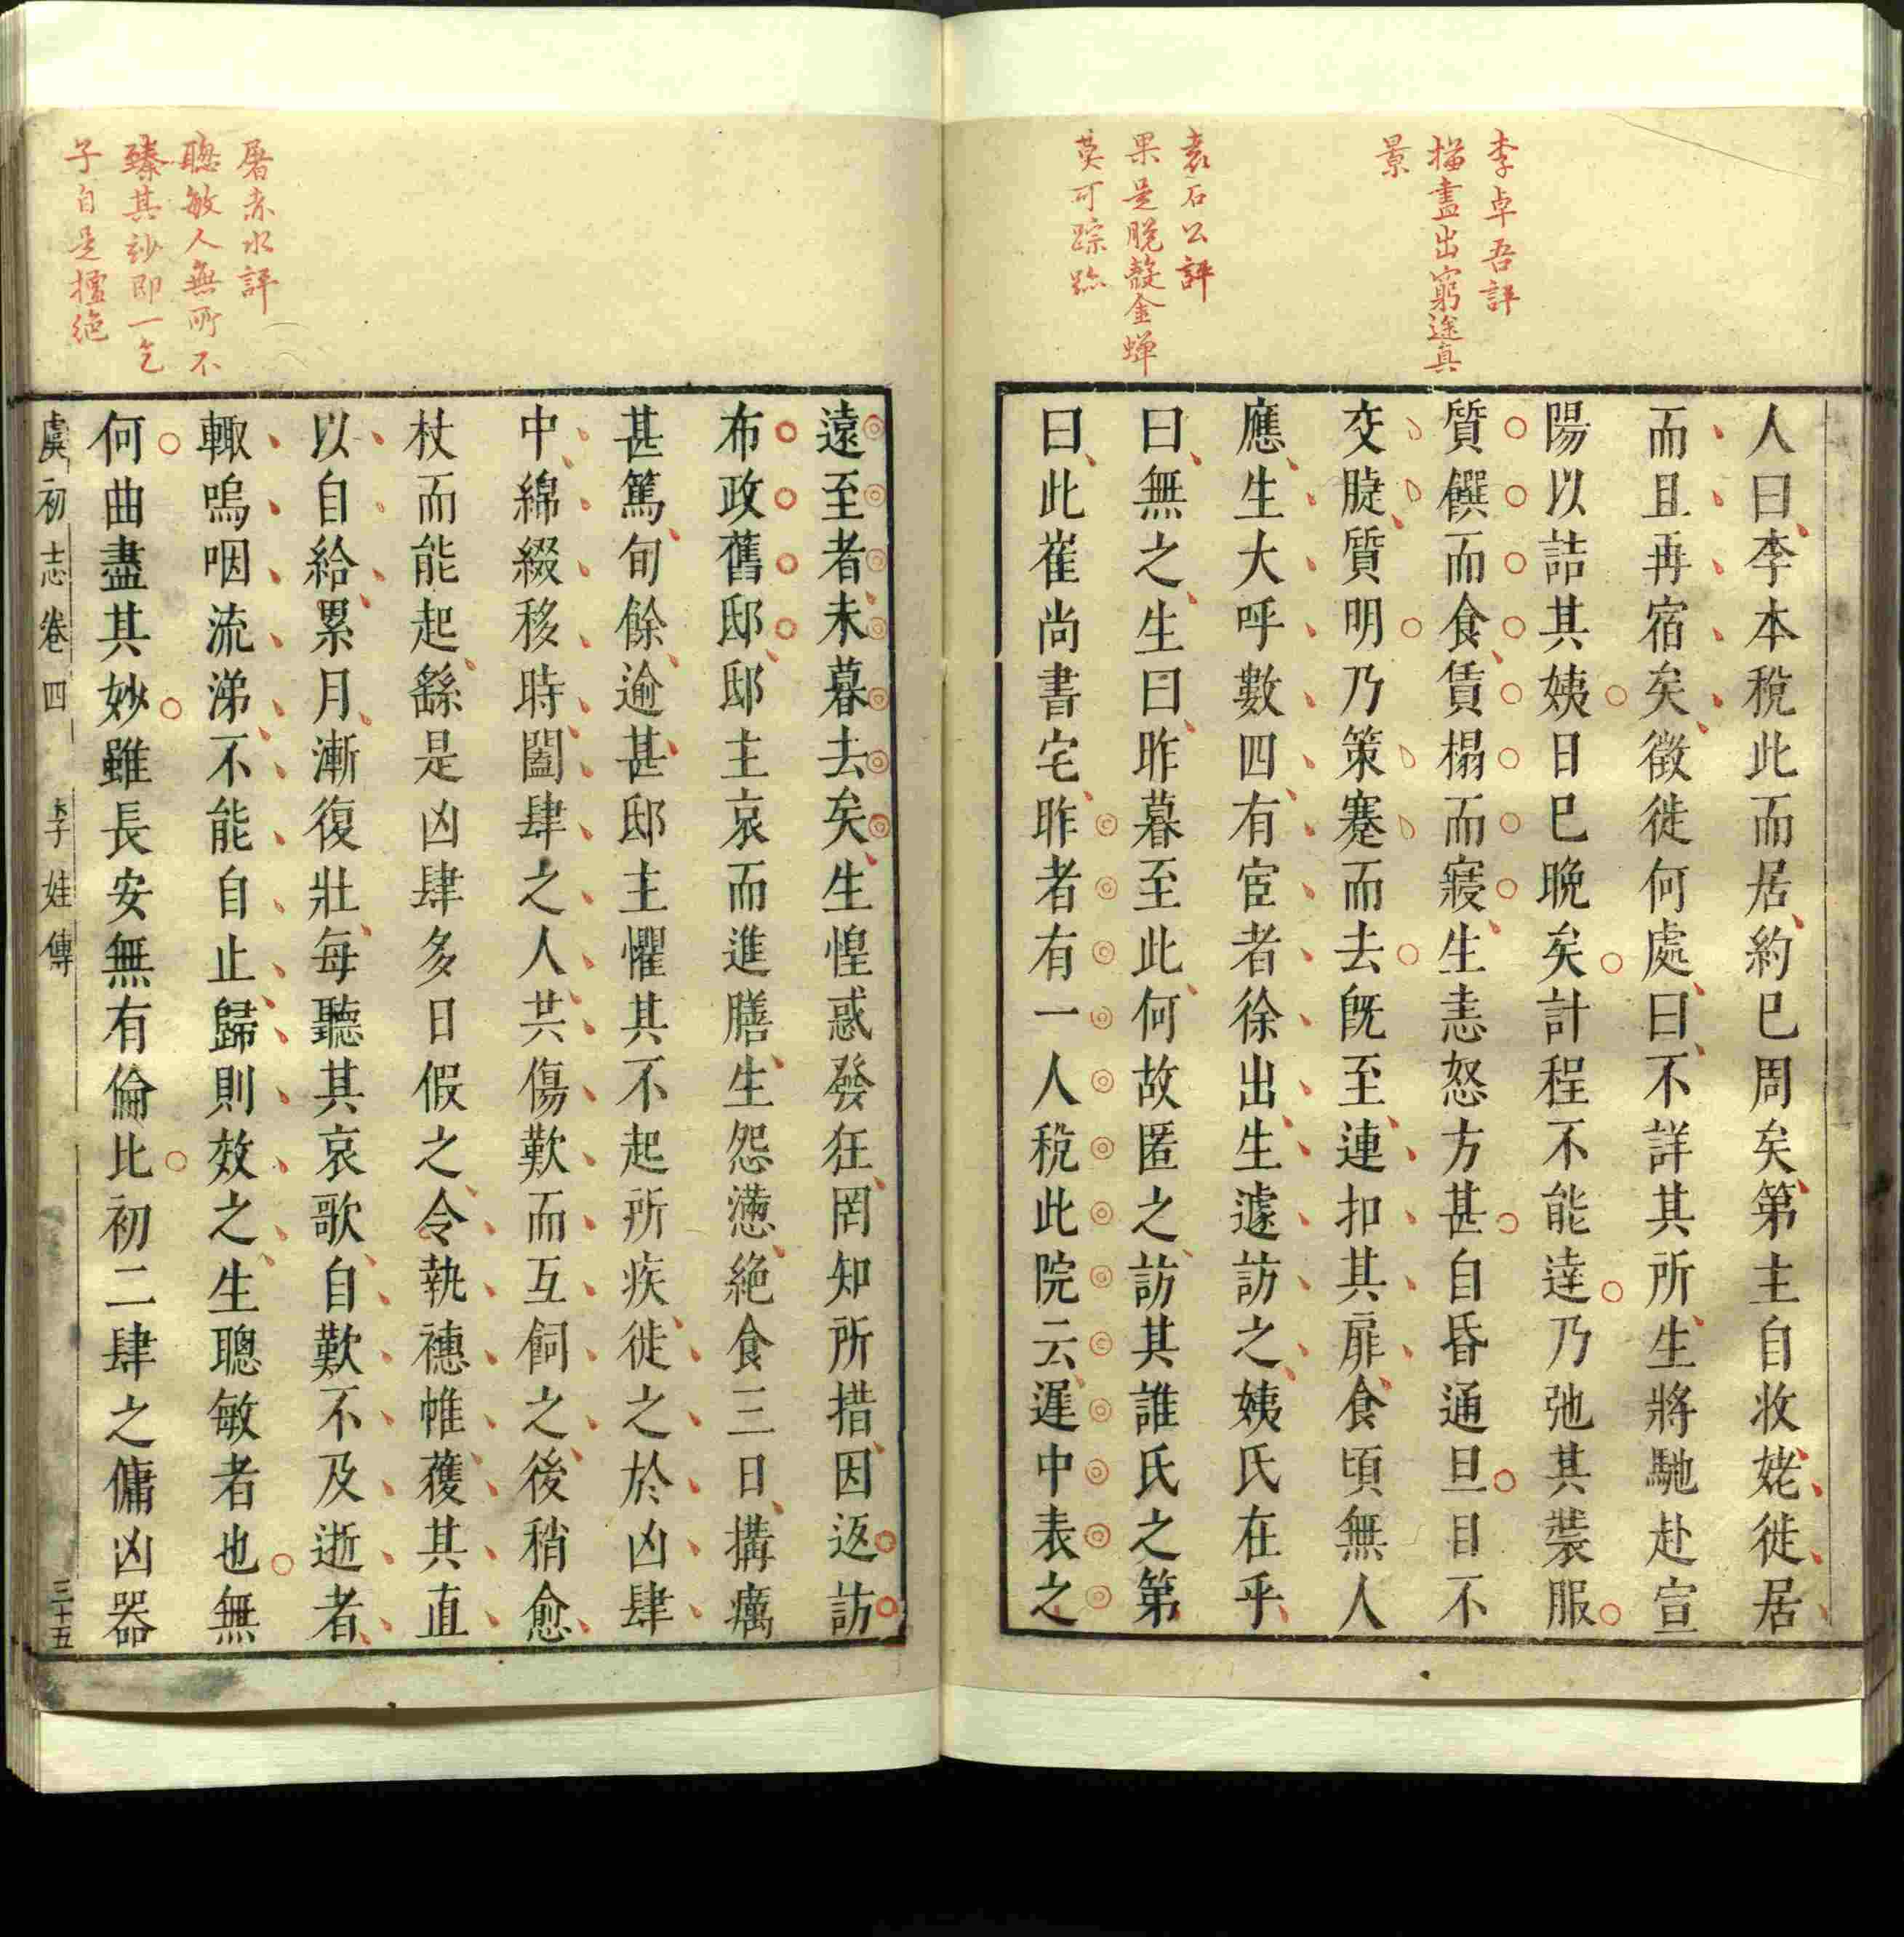 李卓吾評
描畫出窮途真
景
袁石公評
果是脫殼金蟬
莫可踪跡
人曰李本稅此而居約已周矣第主自收姥徙居
而且再宿矣徵徙何處曰不詳其所生將馳赴宣
陽以詰其姨日已晩矣計程不能達乃弛其裝服
質饌而食賃榻而寢生恚怒方甚自昏通旦目不
交睫質明乃策蹇而去旣至連扣其扉食頃無人
應生大呼數四有宦者徐出生遽訪之姨氏在乎
曰無之生曰昨暮至此何故匿之訪其誰氏之第
曰此崔尚書宅昨者有一人稅此院云遲中表之
屠赤水評
聰敏人無所不
臻其玅即一乞
子自是擅絕
遠至者未暮去矣生惶惑發狂罔知所措因返訪
布政舊邸邸主哀而進膳生怨懣絕食三日搆癘
甚篤旬餘逾甚邸主懼其不起所疾徙之於凶肆
中綿綴移時闔肆之人共傷歎而互飼之後稍愈
杖而能起繇是凶肆多日假之令執繐帷獲其直
以自給累月漸復壯每聽其哀歌自歎不及逝者
輙嗚咽流涕不能自止歸則效之生聰敏者也無
何曲盡其妙雖長安無有倫比初二肆之傭凶器
虞初志卷四 李娃傳 三十五